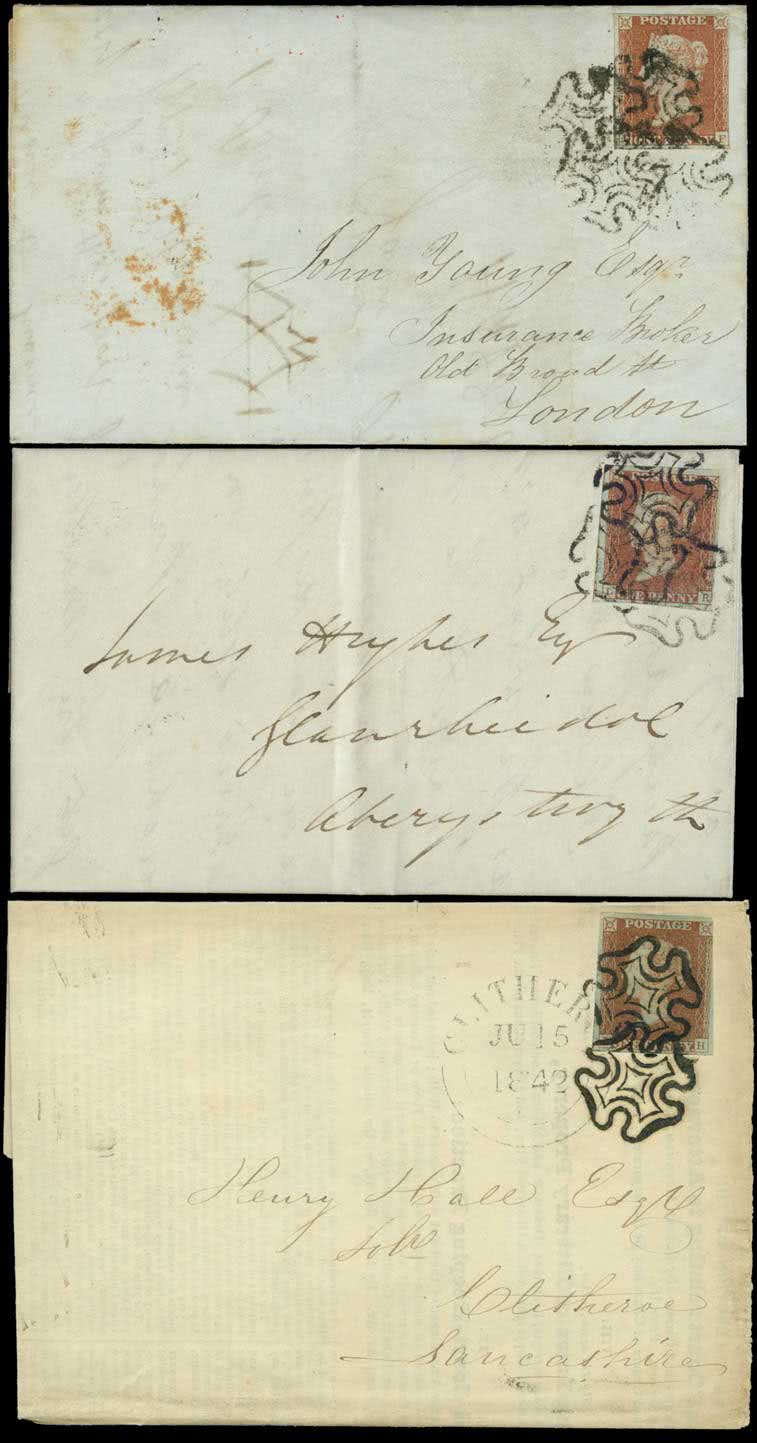 POSTAGE
John Young Esqr
Insurance Broker
Old Broad St
London
PENNY R
James Hughes Esq
Glanrheidol
Aberystwyth
POSTAGE
H
CLITHER
JU 15
1842
Henry Hall Esqre
Solr
Clitheroe
Lancashire